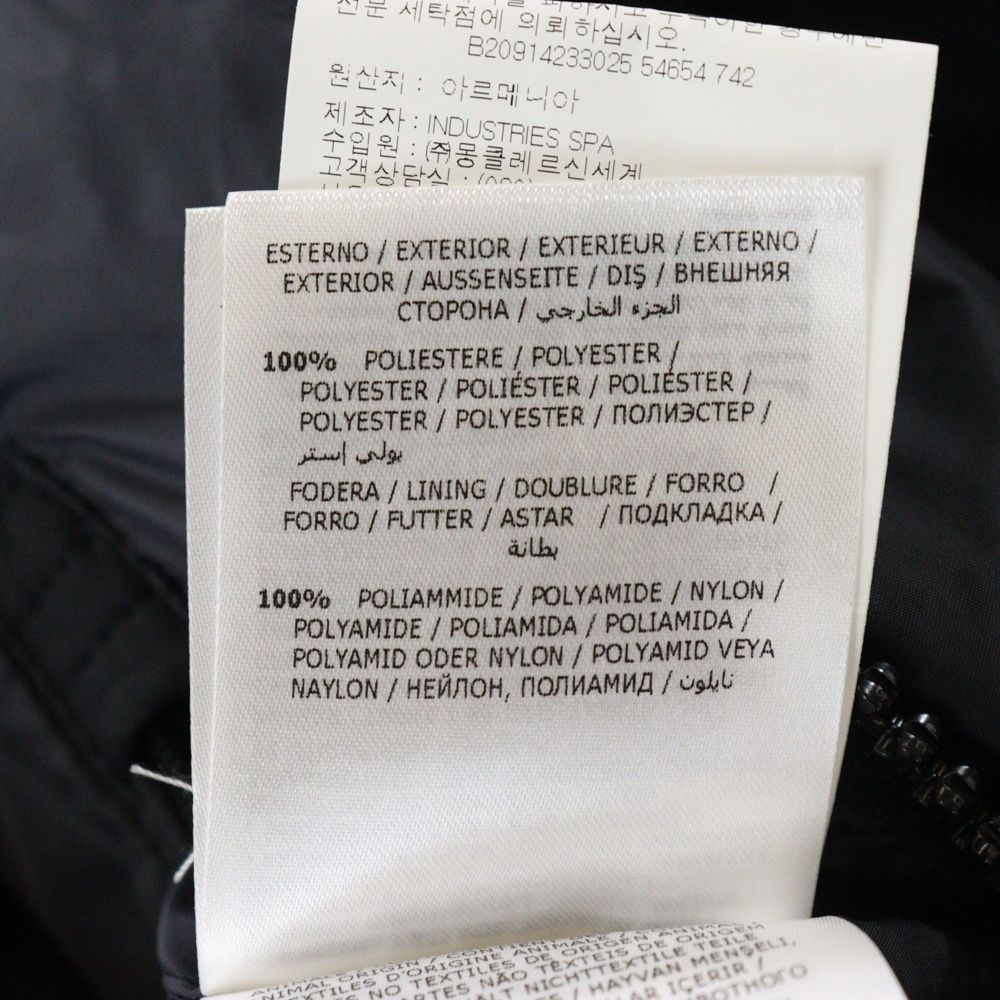 전문 세탁점에 의뢰하십시오.
B20914233025 54654 742
원산지 : 아르메니아
제조자 : INDUSTRIES SPA
수입원 : (주)몽클레르신세계
고객상담실 : (080)
ESTERNO / EXTERIOR / EXTERIEUR / EXTERNO /
EXTERIOR / AUSSENSEITE / DIŞ / ВНЕШНЯЯ
СТОРОНА / الجزء الخارجي
100% POLIESTERE / POLYESTER /
POLYESTER / POLIÉSTER / POLIÉSTER /
POLYESTER / POLYESTER / ПОЛИЭСТЕР /
بولي إستر
FODERA / LINING / DOUBLURE / FORRO /
FORRO / FUTTER / ASTAR / ПОДКЛАДКА /
بطانة
100% POLIAMMIDE / POLYAMIDE / NYLON /
POLYAMIDE / POLIAMIDA / POLIAMIDA /
POLYAMID ODER NYLON / POLYAMID VEYA
NAYLON / НЕЙЛОН, ПОЛИАМИД / نايلون
ANIMAL ORIGIN / CONTIENT
TEXTILES D'ORIGINE ANIMALE
NO TEXTILES DE ORIGEN
PARTES NÃO TÊXTEIS DE ORIGEM
NICHTTEXTILE TEILE
/ HAYVAN MENŞELİ,
İÇERİR /